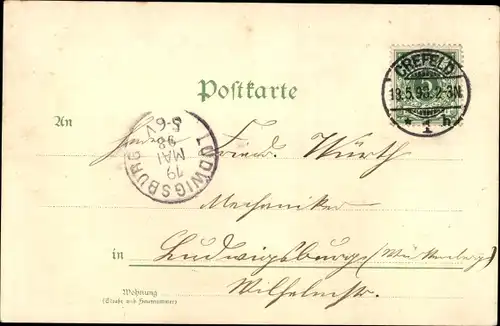 CREFELD
18.5.98.2-3N.
* 1 h
5
Postkarte
An
Herrn Fried. Würth
LUDWIGSBURG
19 MAI 98
5-6V
Mechaniker
in Ludwigsburg (Württemberg)
Wohnung
(Straße und Hausnummer)
Wilhelmstr.